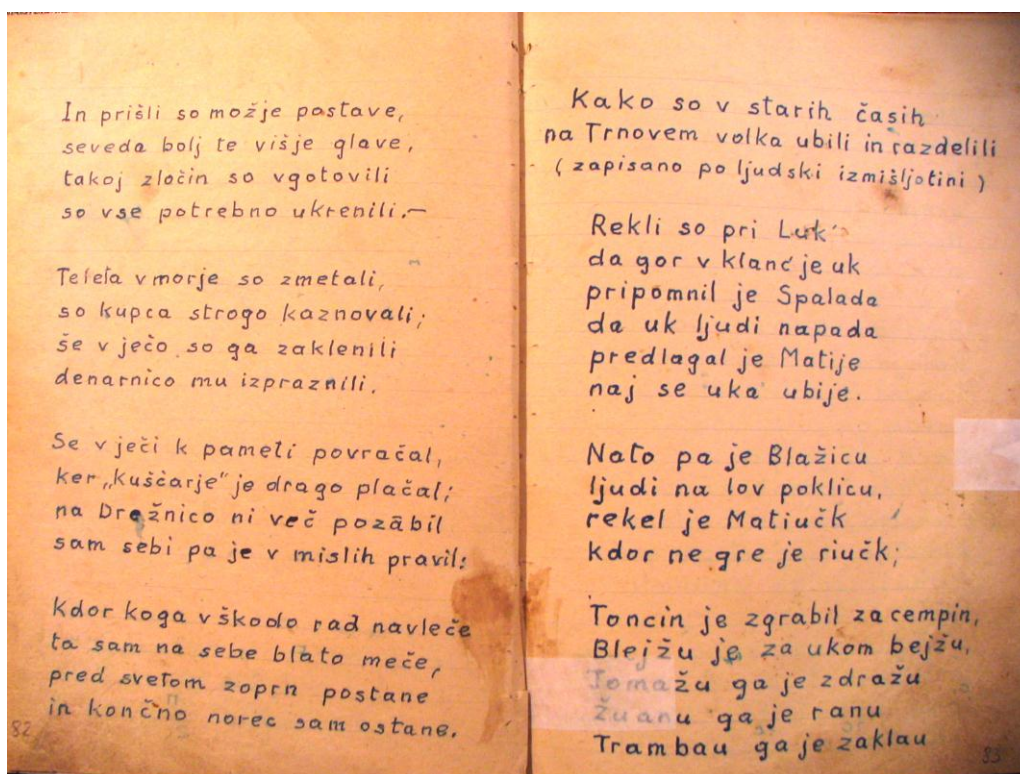 In prišli so možje postave,
seveda bolj te višje glave,
takoj zločin so vgotovili
so vse potrebno ukrenili.—
Teleta v morje so zmetali,
so kupca strogo kaznovali;
še v ječo so ga zaklenili
denarnico mu izpraznili.
Se v ječi k pameti povračal,
ker „kuščarje" je drago plačal;
na Drežnico ni več pozabil
sam sebi pa je v mislih pravil:
Kdor koga v škodo rad navleče
ta sam na sebe blato meče,
pred svetom zoprn postane
in končno norec sam ostane.
82
Kako so v starih časih
na Trnovem volka ubili in razdelili
(zapisano po ljudski izmišljotini)
Rekli so pri Luk'
da gor v klanc je uk
pripomnil je Spalada
da uk ljudi napada
predlagal je Matije
naj se uka ubije.
Nato pa je Blažicu
ljudi na lov poklicu,
rekel je Matiučk
kdor ne gre je riučk;
Toncin je zgrabil za cempin,
Blejžu je za ukom bejžu,
Tomažu ga je zdražu
Žuanu ga je ranu
Trambau ga je zaklau
83